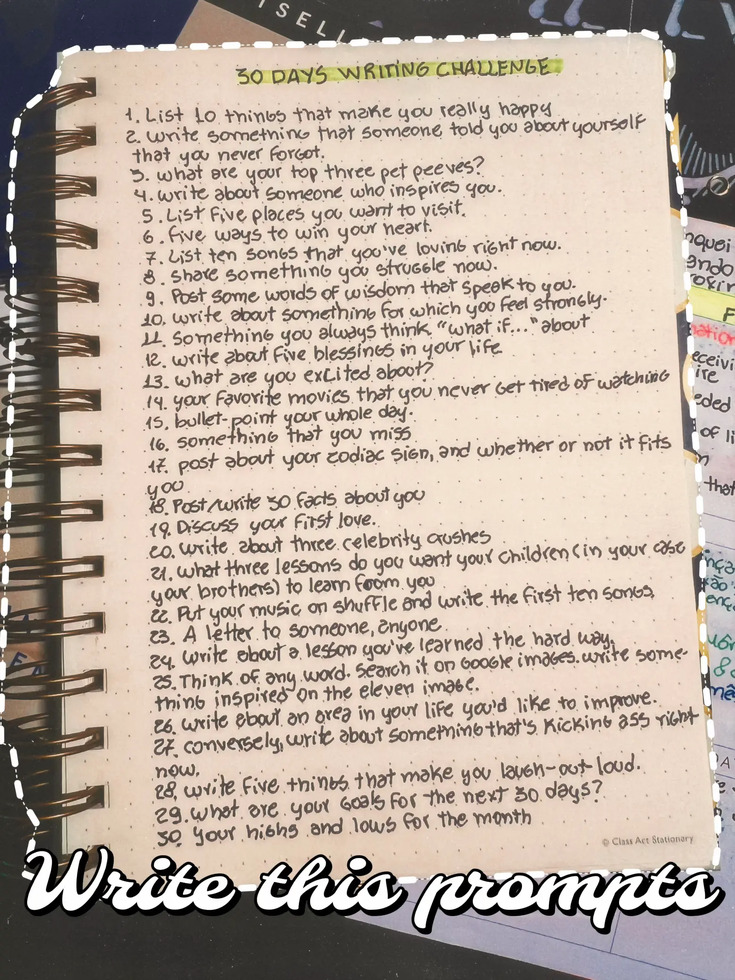 ISELL
30 DAYS WRITING CHALLENGE
1. List 10 things that make you really happy
2. write something that someone told you about yourself
that you never forgot.
3. what are your top three pet peeves?
4. write about someone who inspires you.
5. List five places you want to visit.
6. five ways to win your heart.
7. List ten songs that you've loving right now.
8. share something you struggle now.
9. Post some words of wisdom that speak to you.
10. write about something for which you feel strongly.
11. something you always think "what if..." about
12. write about five blessings in your life
13. what are you excited about?
14. your favorite movies that you never get tired of watching
15. bullet-point your whole day.
16. something that you miss
17. post about your zodiac sign, and whether or not it fits
you
18. Post/write 30 facts about you
19. Discuss your first love.
20. write about three celebrity crushes
21. what three lessons do you want your children (in your case
your brothers) to learn from you
22. Put your music on shuffle and write the first ten songs.
23. A letter to someone, anyone.
24. write about a lesson you've learned the hard way.
25. Think of any word. search it on Google images. write some-
thing inspired on the eleven image.
26. write about an area in your life you'd like to improve.
27. conversely, write about something that's kicking ass right
now.
28. write five things that make you laugh-out loud.
29. what are your goals for the next 30 days?
30 your highs and lows for the month
© Class Act Stationary
Write this prompts
nquei
ando
F
eceivi
ire
eded
of li
that